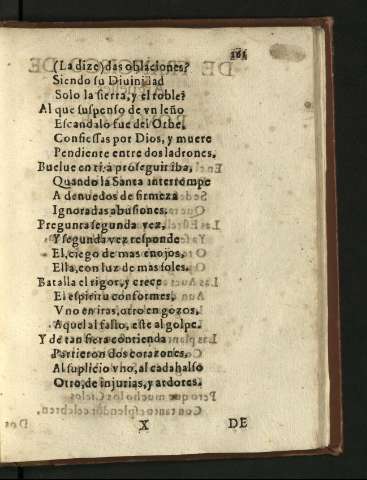 161
(La dize) das oblaciones?
Siendo su Diuinidad
Solo la sierra, y el roble?
Al que suspenso de vn leño
Escandalo fue del Orbe,
Confiessas por Dios, y muere
Pendiente entre dos ladrones,
Buelue en ti, à proseguir iba,
Quando la Santa interrompe
A denuedos de firmeza
Ignoradas abusiones.
Pregunta segunda vez,
Y segunda vez responde
El, ciego de mas enojos,
Ella, con luz de mas soles.
Batalla el rigor, y crece
El espiritu conformes,
Vno en iras, otro en gozos,
Aquel al fallo, este al golpe.
Y de tan fiera contienda
Partieron dos corazones,
Al suplicio vno, al cadahalso
Otro, de injurias, y ardores.
X DE